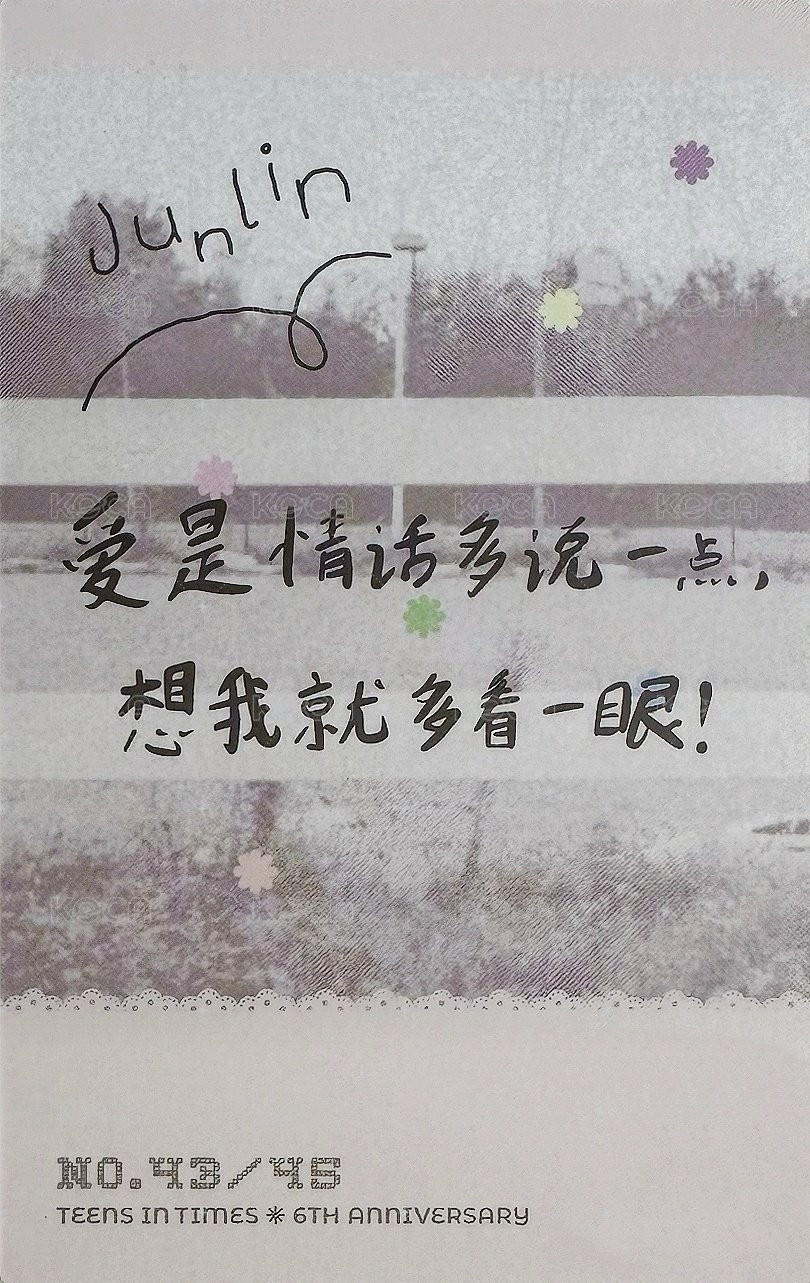 Junlin
爱是情话多说一点，
想我就多看一眼！
NO.43/45
TEENS IN TIMES ✻ 6TH ANNIVERSARY
KOCA KOCA KOCA KOCA